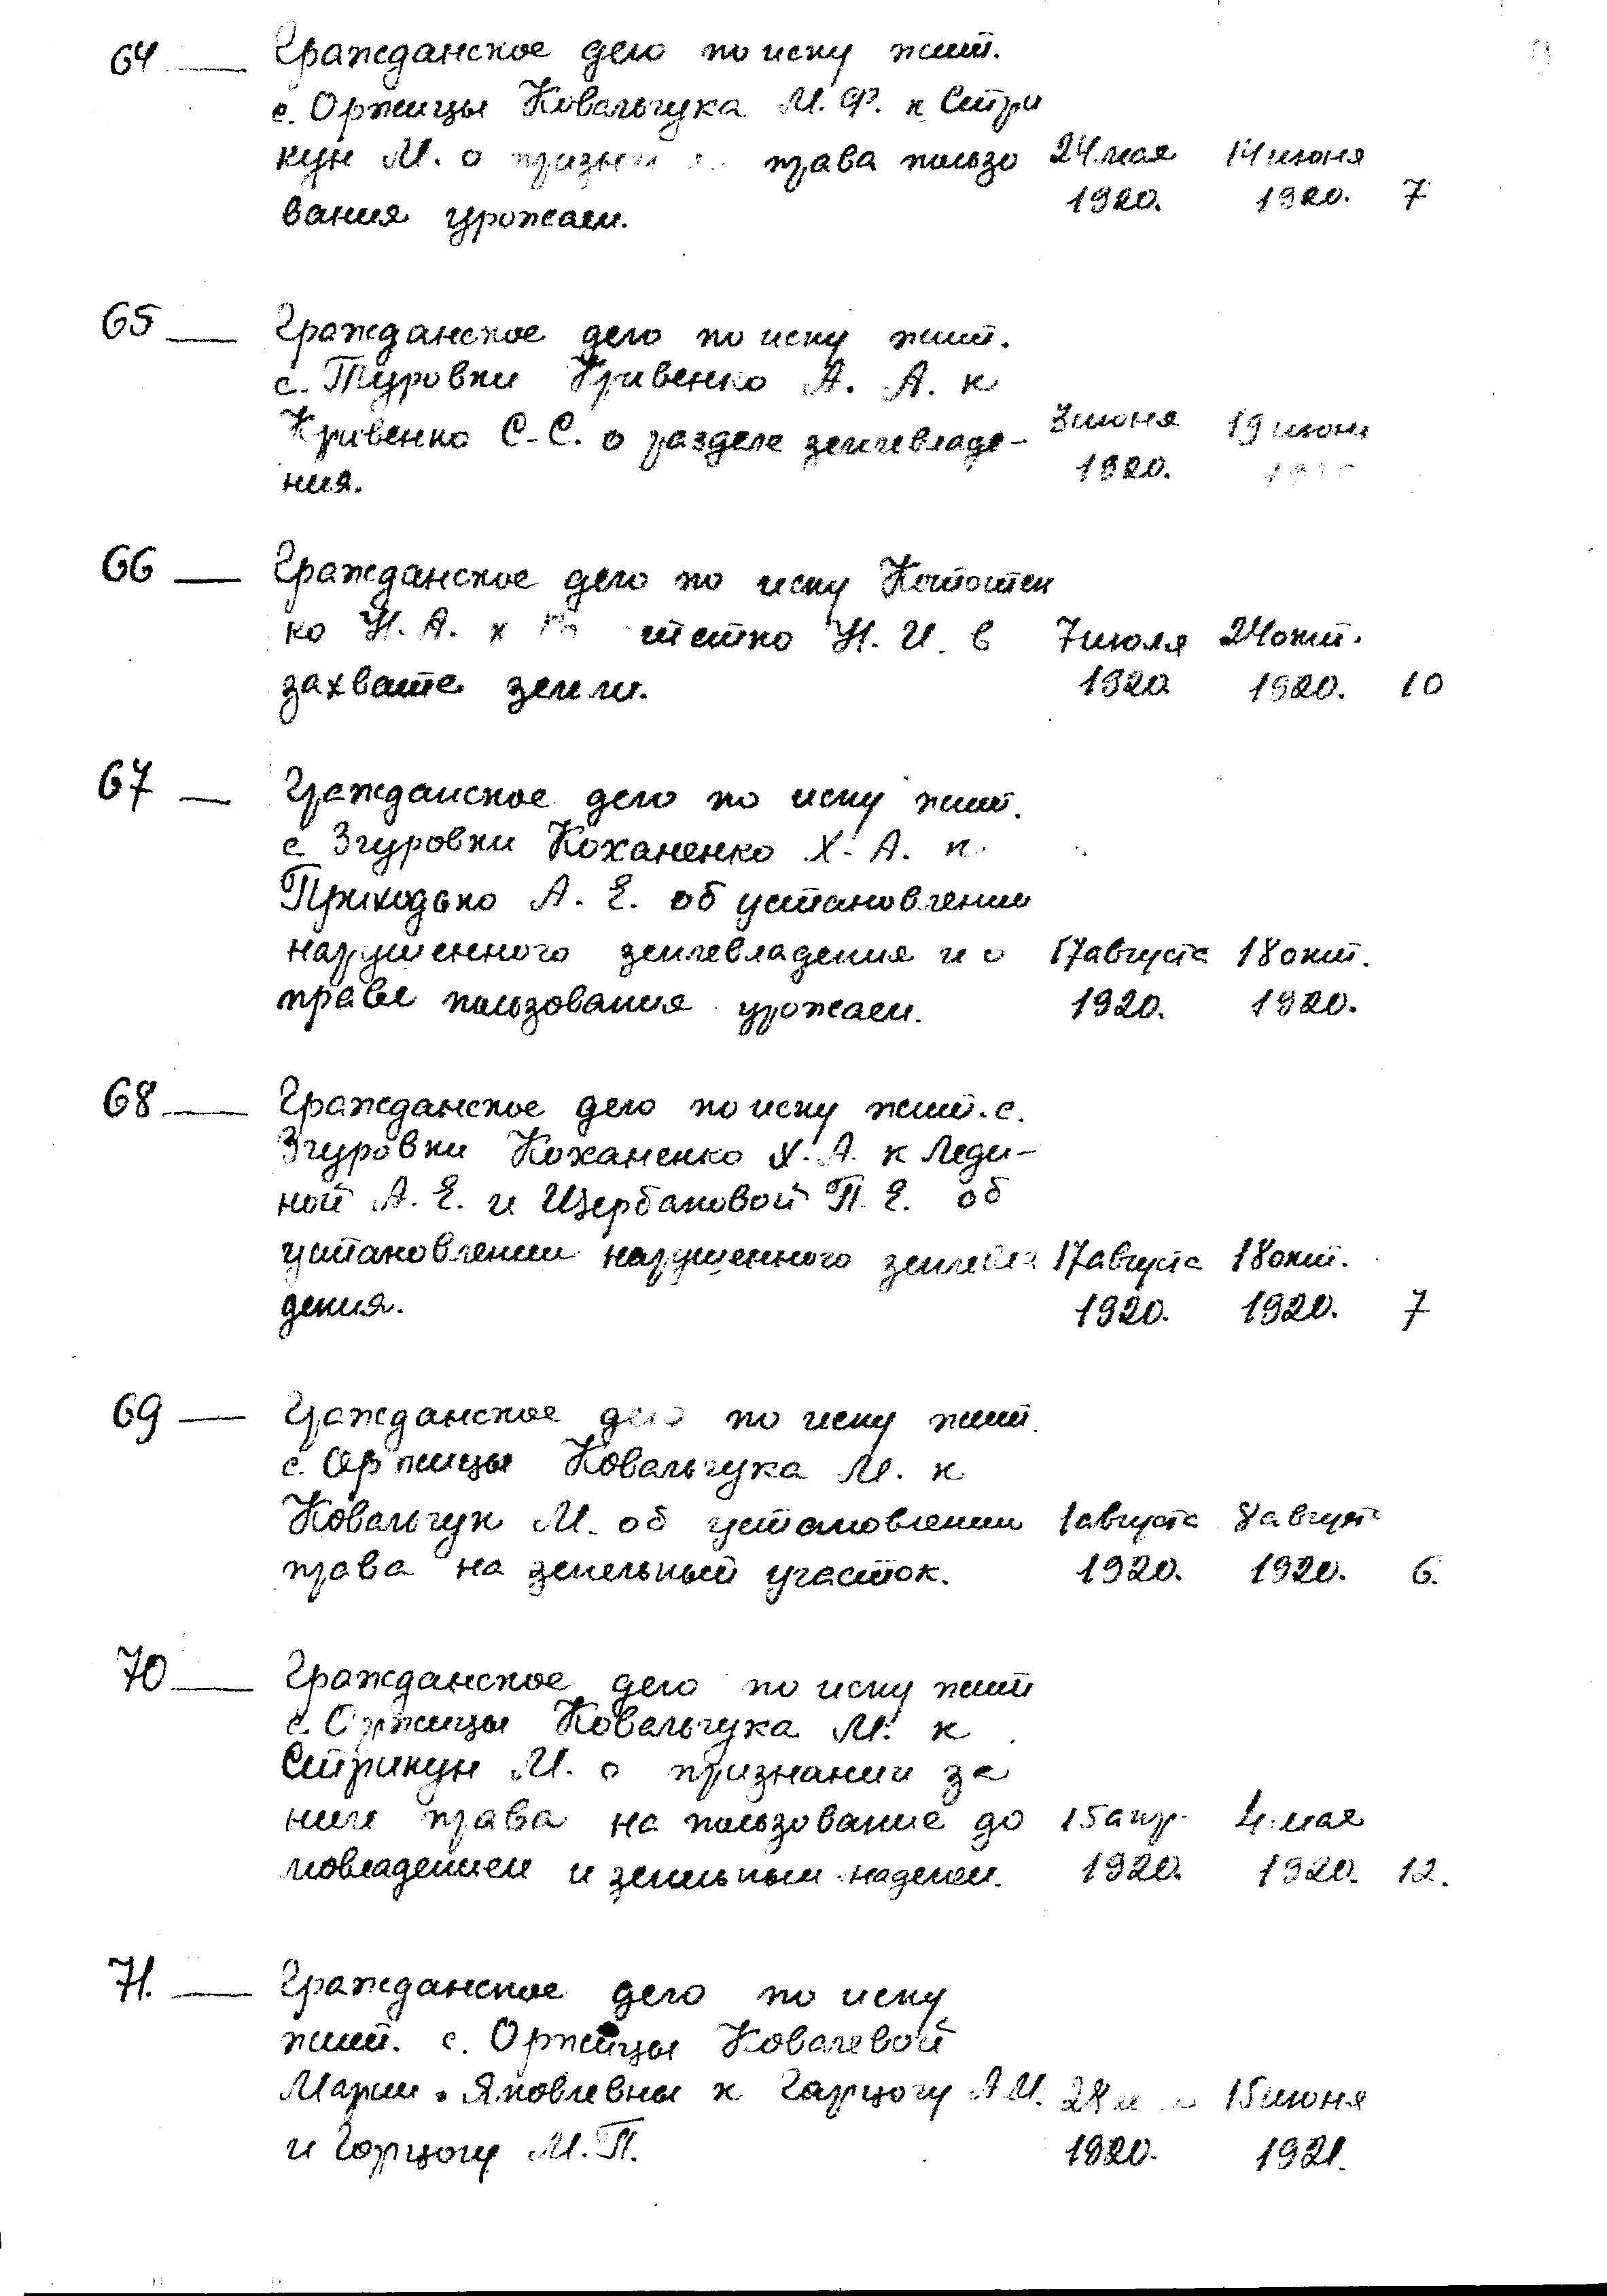 64 — Гражданское дело по иску жит.
с. Оржицы Ковальчука М. Ф. к Стри
кун М. о права пользо 24 мая 14 июня
вания урожаем. 1920. 1920. 7
65 — Гражданское дело по иску жит.
с. Туровки Кривенко А. А. к
Кривенко С. С. о разделе землевладе- 3 июня 19 июня
ния. 1920.
66 — Гражданское дело по иску
ко Н. А. к Н. И. в 7 июля 24 окт.
захвате земли. 1920 1920. 10
67 — Гражданское дело по иску жит.
с Згуровки Коханенко Х. А. к
Приходько А. Е. об установлении
нарушенного землевладения и о 17 августа 18 окт.
праве пользования урожаем. 1920. 1920.
68 — Гражданское дело по иску жит. с.
Згуровки Коханенко Х. А. к Леди-
ной А. Е. и Щербаковой П. Е. об
установлении нарушенного землевла 17 августа 18 окт.
дения. 1920. 1920. 7
69 — Гражданское дело по иску жит.
с. Оржицы Ковальчука М. к
Ковальчук М. об установлении 1 августа 8 август
права на земельный участок. 1920. 1920. 6.
70 — Гражданское дело по иску жит
с. Оржицы Ковальчука М. к
Стрикун М. о признании за
ним права на пользование до 15 апр. 4 мая
мовладением и земельным наделом. 1920. 1920. 12.
71. — Гражданское дело по иску
жит. с. Оржицы Ковалевой
Марии Яковлевны к Гарцогу А И. 28 15 июня
и Горцогу М. П. 1920. 1921.